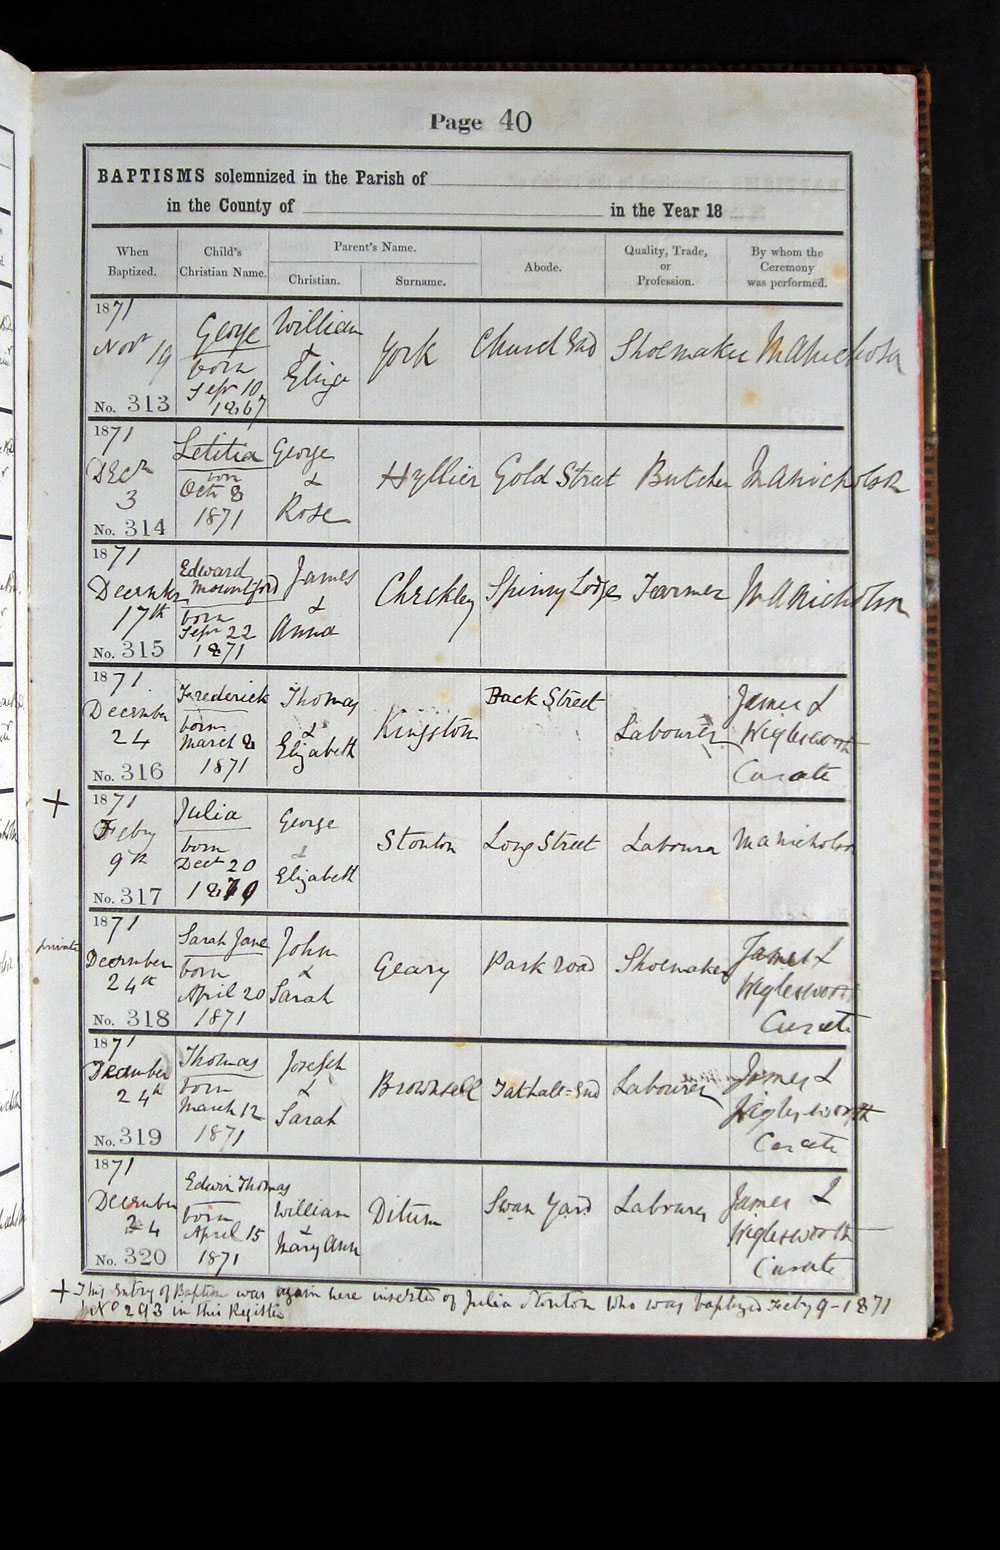 Page 40
BAPTISMS solemnized in the Parish of
in the County of in the Year 18
When Baptized.
Child's Christian Name.
Parent's Name.
Christian.
Surname.
Abode.
Quality, Trade, or Profession.
By whom the Ceremony was performed.
1871
Novr 19
No. 313
George
born
Sepr 10
1867
William
&
Eliza
York
Church End
Shoemaker
M A Nicholson
1871
Decr
3
No. 314
Letitia
born
Octr 8
1871
George
&
Rose
Hyllier
Gold Street
Butcher
M A Nicholson
1871
December
17th
No. 315
Edward
Mountford
born
Sepr 22
1871
James
&
Anna
Checkley
Spinny Lodge
Farmer
M A Nicholson
1871
December
24
No. 316
Frederick
born
March 8
1871
Thomas
&
Elizabeth
Kingston
Back Street
Labourer
James L
Wiglesworth
Curate
+
1871
Feby
9th
No. 317
Julia
born
Decr 20
1870
George
&
Elizabeth
Stonton
Long Street
Labourer
M A Nicholson
private
1871
December
24th
No. 318
Sarah Jane
born
April 20
1871
John
&
Sarah
Geary
Park road
Shoemaker
James L
Wiglesworth
Curate
1871
December
24th
No. 319
Thomas
born
March 12
1871
Joseph
&
Sarah
Brownsell
Tathall=End
Labourer
James L
Wiglesworth
Curate
1871
December
24
No. 320
Edwin Thomas
born
April 15
1871
William
&
Mary Ann
Ditum
Swan Yard
Labourer
James L
Wiglesworth
Curate
+ This Entry of Baptism was again here inserted of Julia Stonton who was baptized Feby 9-1871
No 293 in this Register